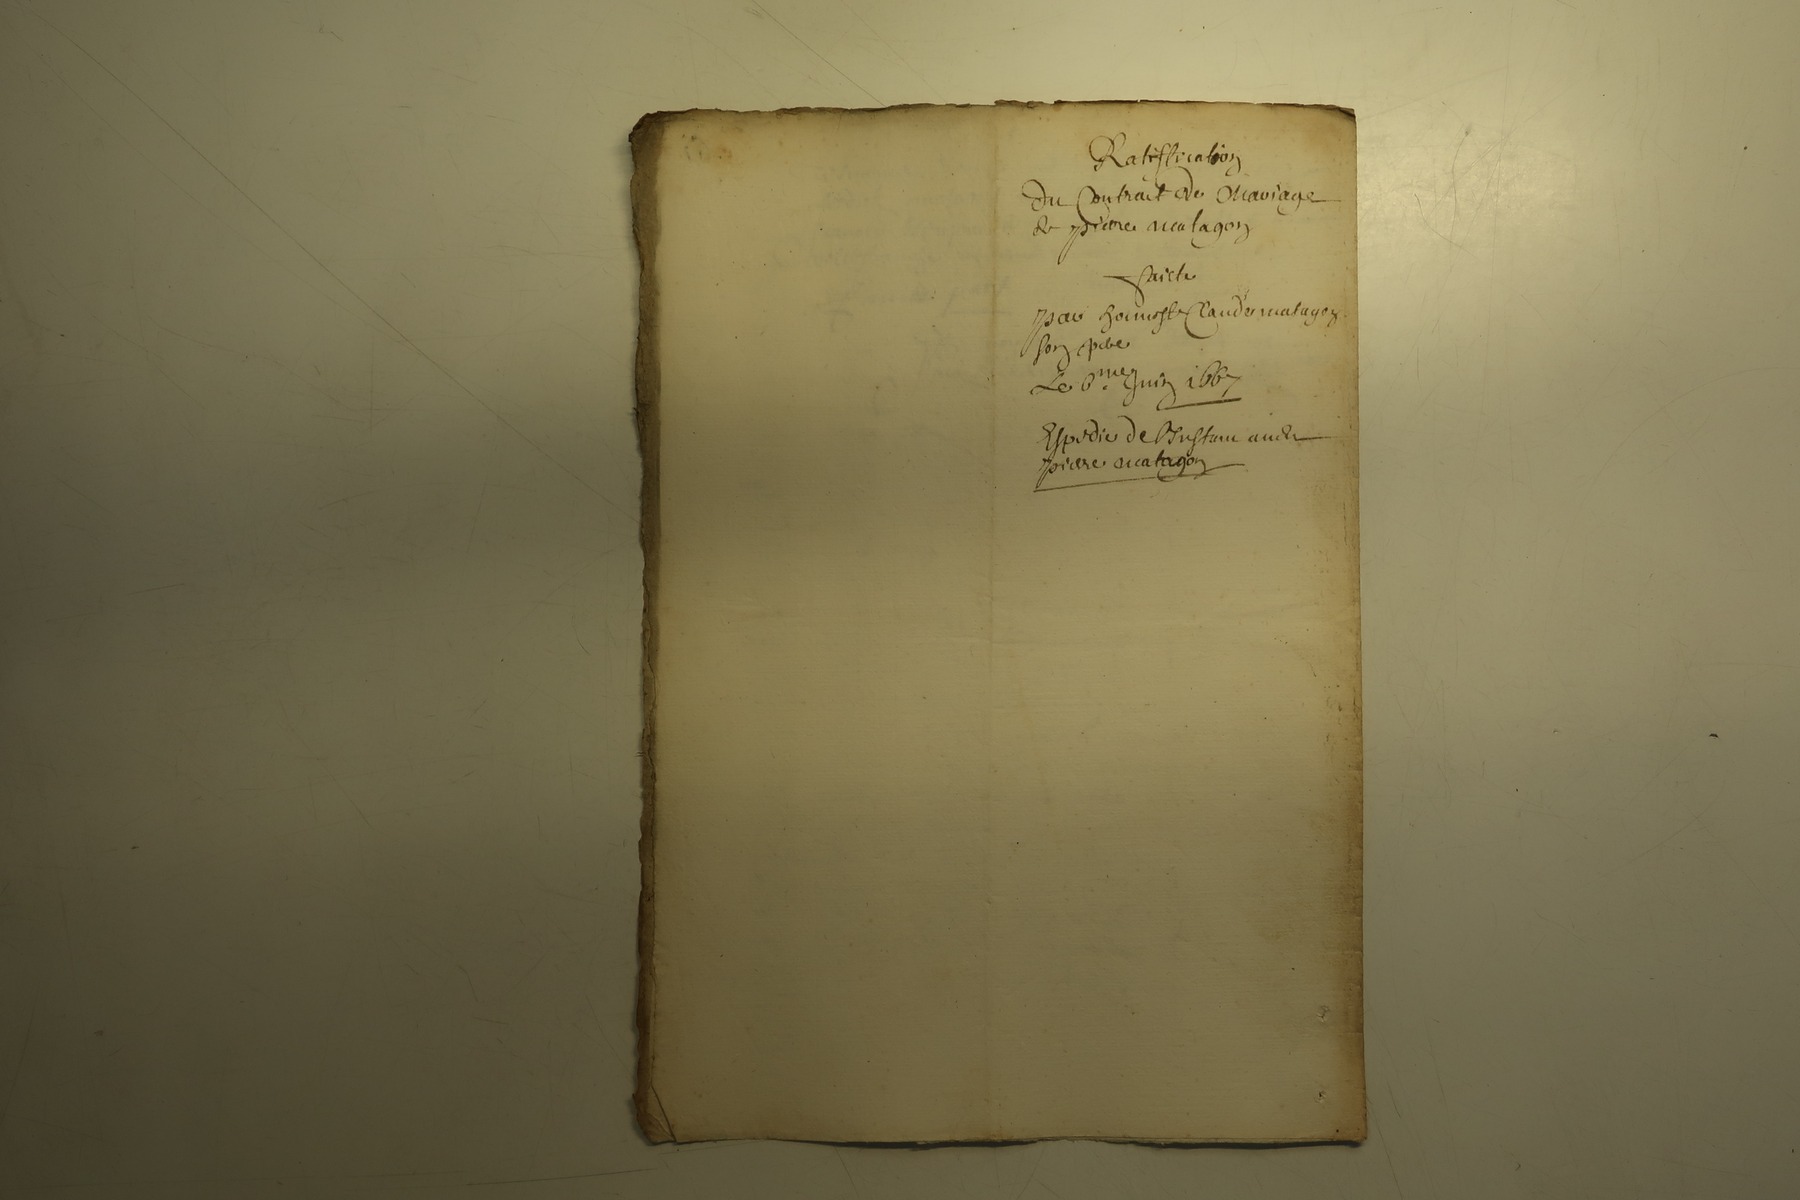 Ratiffication
Du Contract de Mariage
de pierre matagon
faicte
par honneste Claude matagon
son pere
Le 6me Juin 1667
Expedie de
pierre matagon